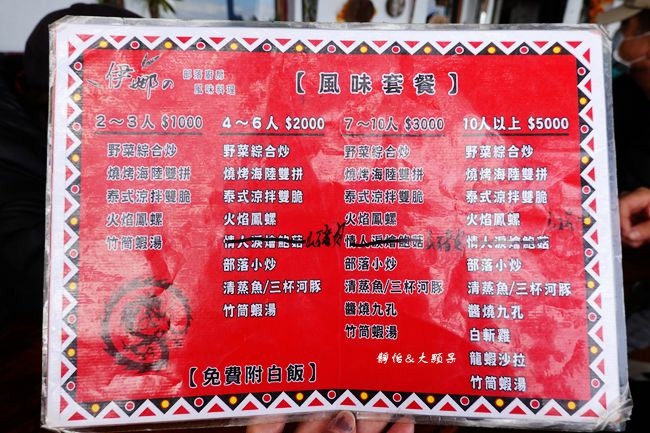 伊娜の
部落廚房
風味料理
【風味套餐】
2～3人 $1000
野菜綜合炒
燒烤海陸雙拼
泰式涼拌雙脆
火焰鳳螺
竹筒蝦湯
4～6人 $2000
野菜綜合炒
燒烤海陸雙拼
泰式涼拌雙脆
火焰鳳螺
情人淚燴鮑菇
部落小炒
清蒸魚/三杯河豚
竹筒蝦湯
7～10人 $3000
野菜綜合炒
燒烤海陸雙拼
泰式涼拌雙脆
火焰鳳螺
情人淚燴鮑菇
部落小炒
清蒸魚/三杯河豚
醬燒九孔
竹筒蝦湯
10人以上 $5000
野菜綜合炒
燒烤海陸雙拼
泰式涼拌雙脆
火焰鳳螺
情人淚燴鮑菇
部落小炒
清蒸魚/三杯河豚
醬燒九孔
白斬雞
龍蝦沙拉
竹筒蝦湯
【免費附白飯】
靜怡&大顆呆